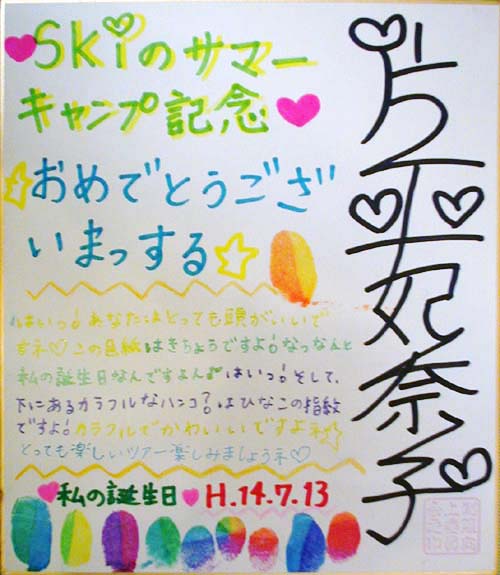 片平妃奈子
Skiのサマー
キャンプ記念
おめでとうござ
いまっする
はいっ!あなたはとっても頭がいいで
すネ♡この色紙はきちょうですよ!なっなんと
私の誕生日なんですよん♪はいっ!そして、
下にあるカラフルなハンコ?はひなこの指紋
ですよ!カラフルでかわいいですよネ☆
とっても楽しいツアー楽しみましょうネ♡
私の誕生日♥H.14.7.13